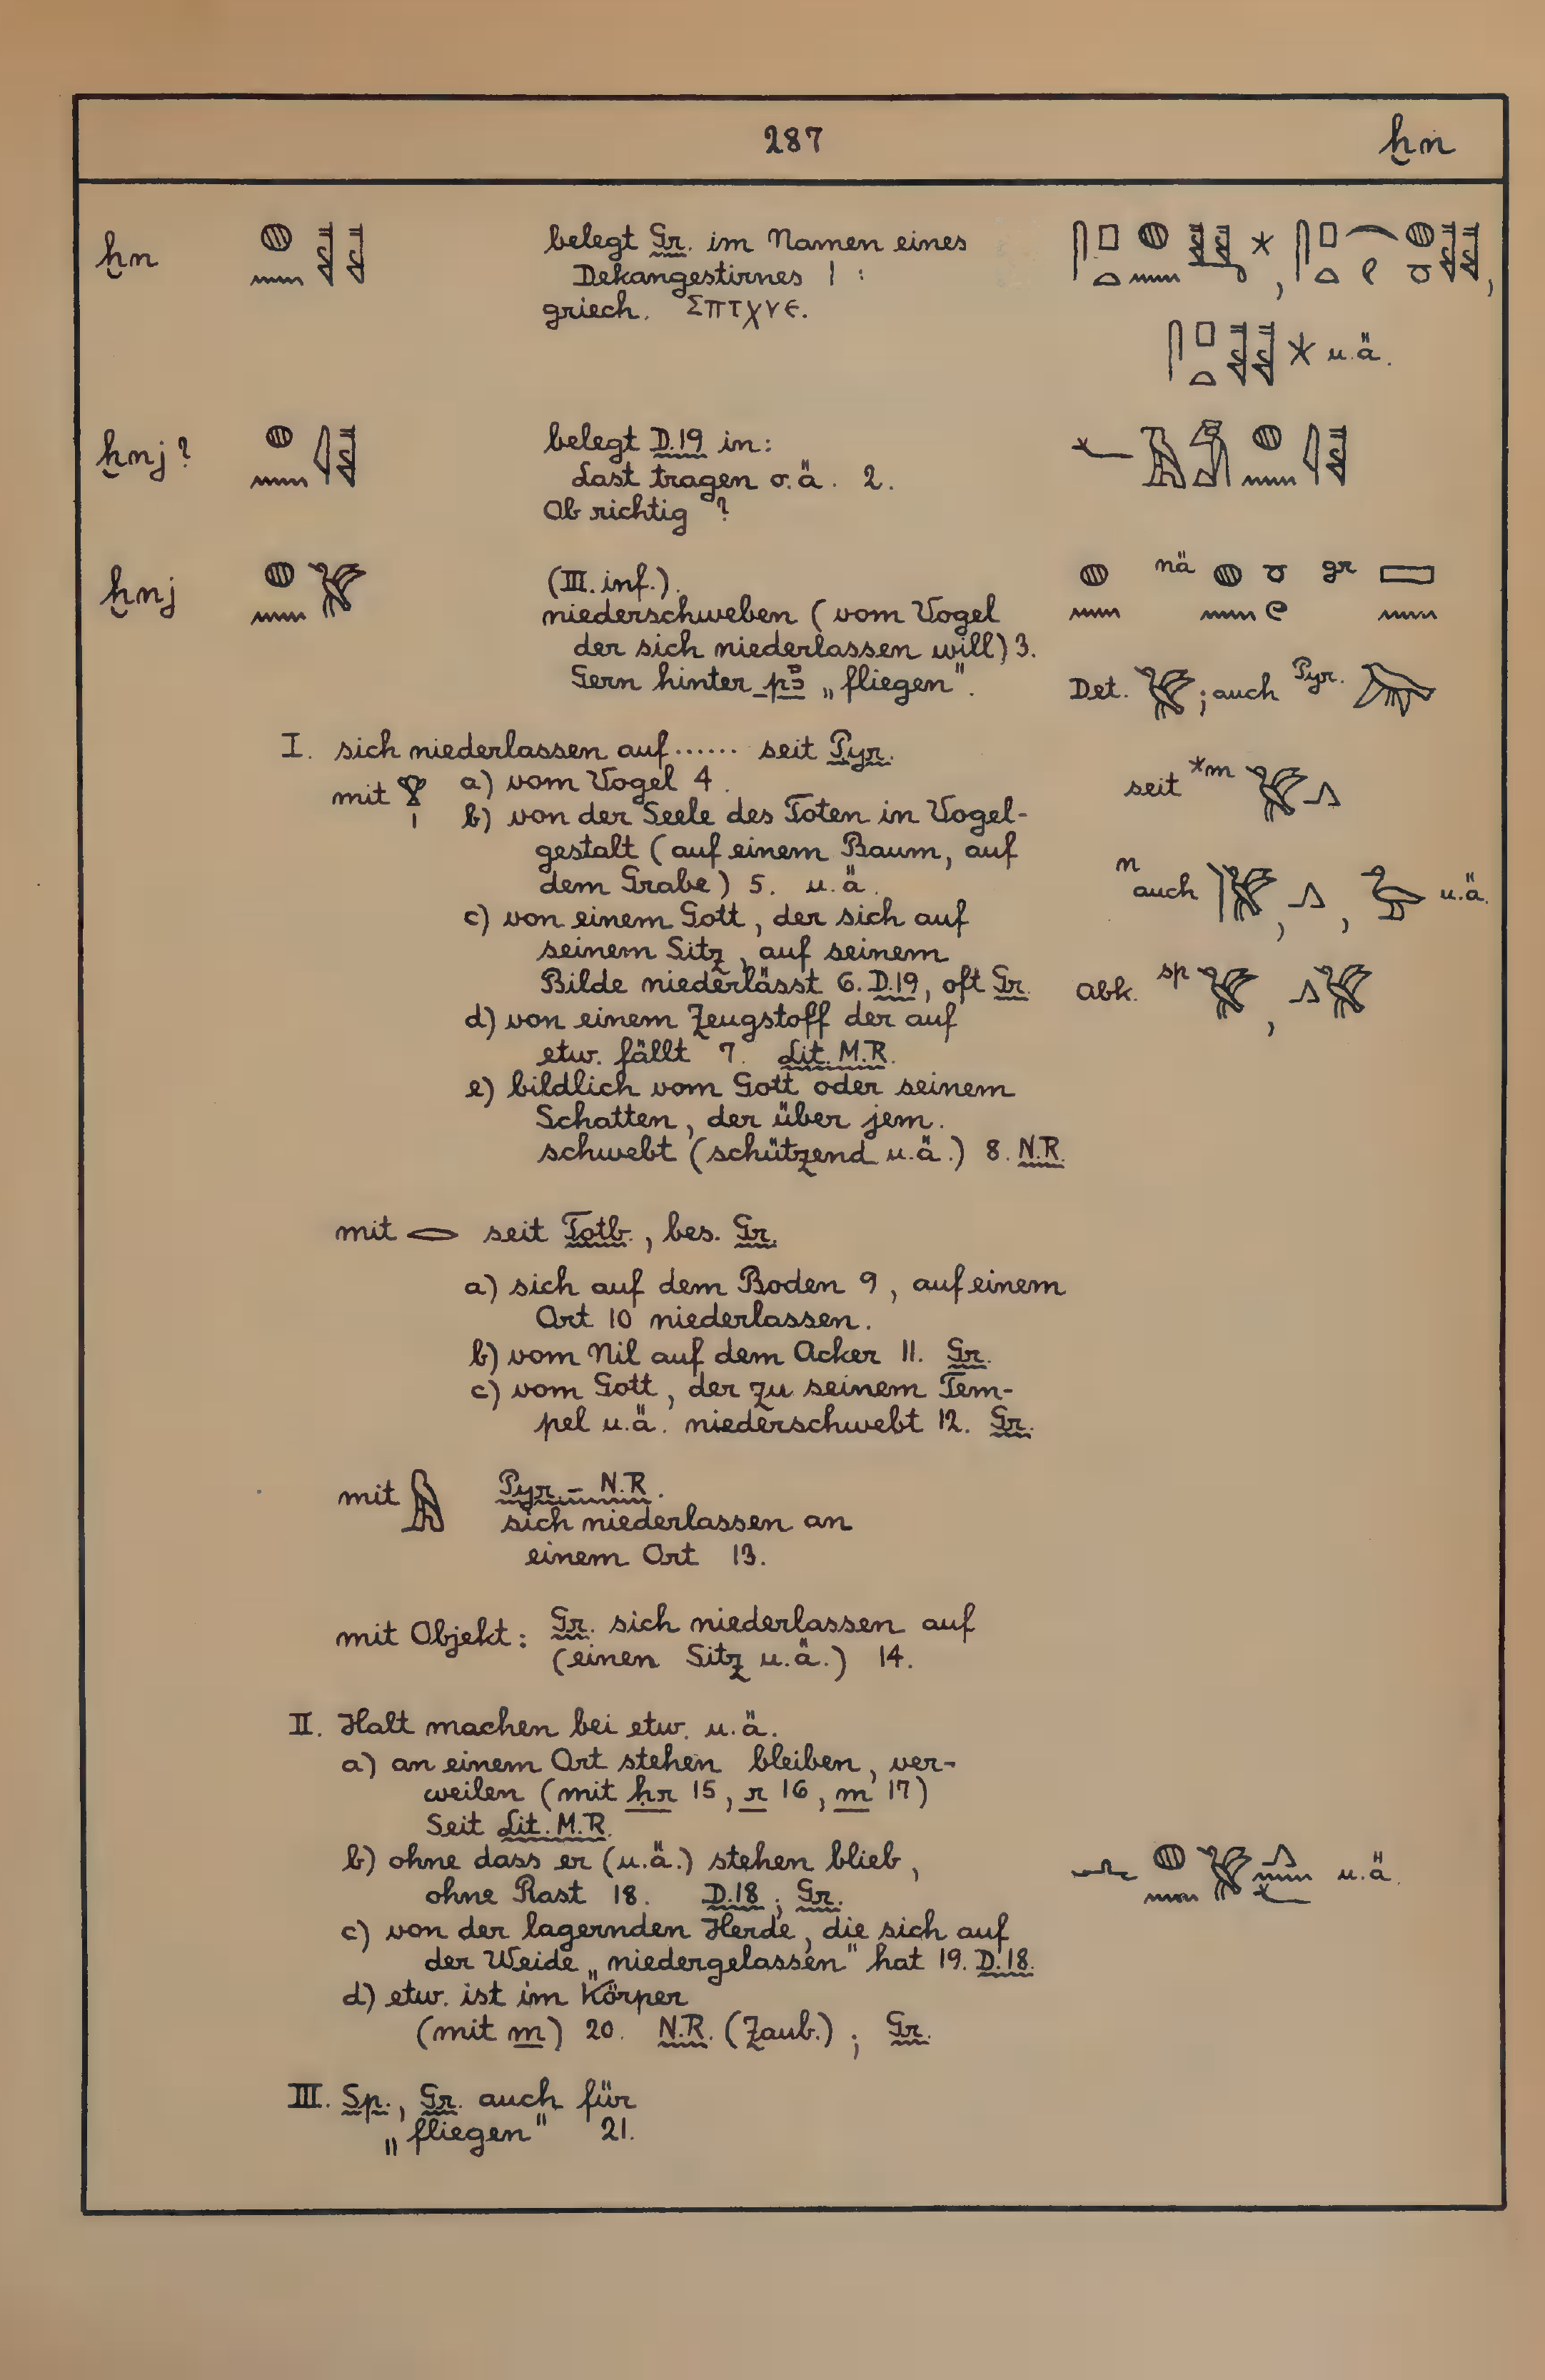 287 ḫn
ḫn belegt Gr. im Namen eines
Dekangestirnes 1 :
griech. Σπτχνε.
u.ä.
ḫnj? belegt D.19 in:
Last tragen o.ä. 2.
Ob richtig ?
ḫnj (III. inf.). nä gr
niederschweben (vom Vogel
der sich niederlassen will) 3.
Gern hinter pꜣ „fliegen". Det. ; auch Pyr.
I. sich niederlassen auf ...... seit Pyr.
mit a) vom Vogel 4. seit *m
b) von der Seele des Toten in Vogel-
gestalt (auf einem Baum, auf
dem Grabe) 5. u.ä. n auch , , u.ä.
c) von einem Gott, der sich auf
seinem Sitz, auf seinem
Bilde niederlässt 6. D.19, oft Gr. Abk. sp ,
d) von einem Zeugstoff der auf
etw. fällt 7. Lit. M.R.
e) bildlich vom Gott oder seinem
Schatten, der über jem.
schwebt (schützend u.ä.) 8. N.R.
mit seit Totb., bes. Gr.
a) sich auf dem Boden 9, auf einem
Ort 10 niederlassen.
b) vom Nil auf dem Acker 11. Gr.
c) vom Gott, der zu seinem Tem-
pel u.ä. niederschwebt 12. Gr.
mit Pyr. - N.R.
sich niederlassen an
einem Ort 13.
mit Objekt: Gr. sich niederlassen auf
(einen Sitz u.ä.) 14.
II. Halt machen bei etw. u.ä.
a) an einem Ort stehen bleiben, ver-
weilen (mit ḥr 15, r 16, m 17)
Seit Lit. M.R.
b) ohne dass er (u.ä.) stehen blieb, u.ä.
ohne Rast 18. D.18; Gr.
c) von der lagernden Herde, die sich auf
der Weide „niedergelassen" hat 19. D.18.
d) etw. ist im Körper
(mit m) 20. N.R. (Zaub.); Gr.
III. Sp., Gr. auch für
„fliegen" 21.